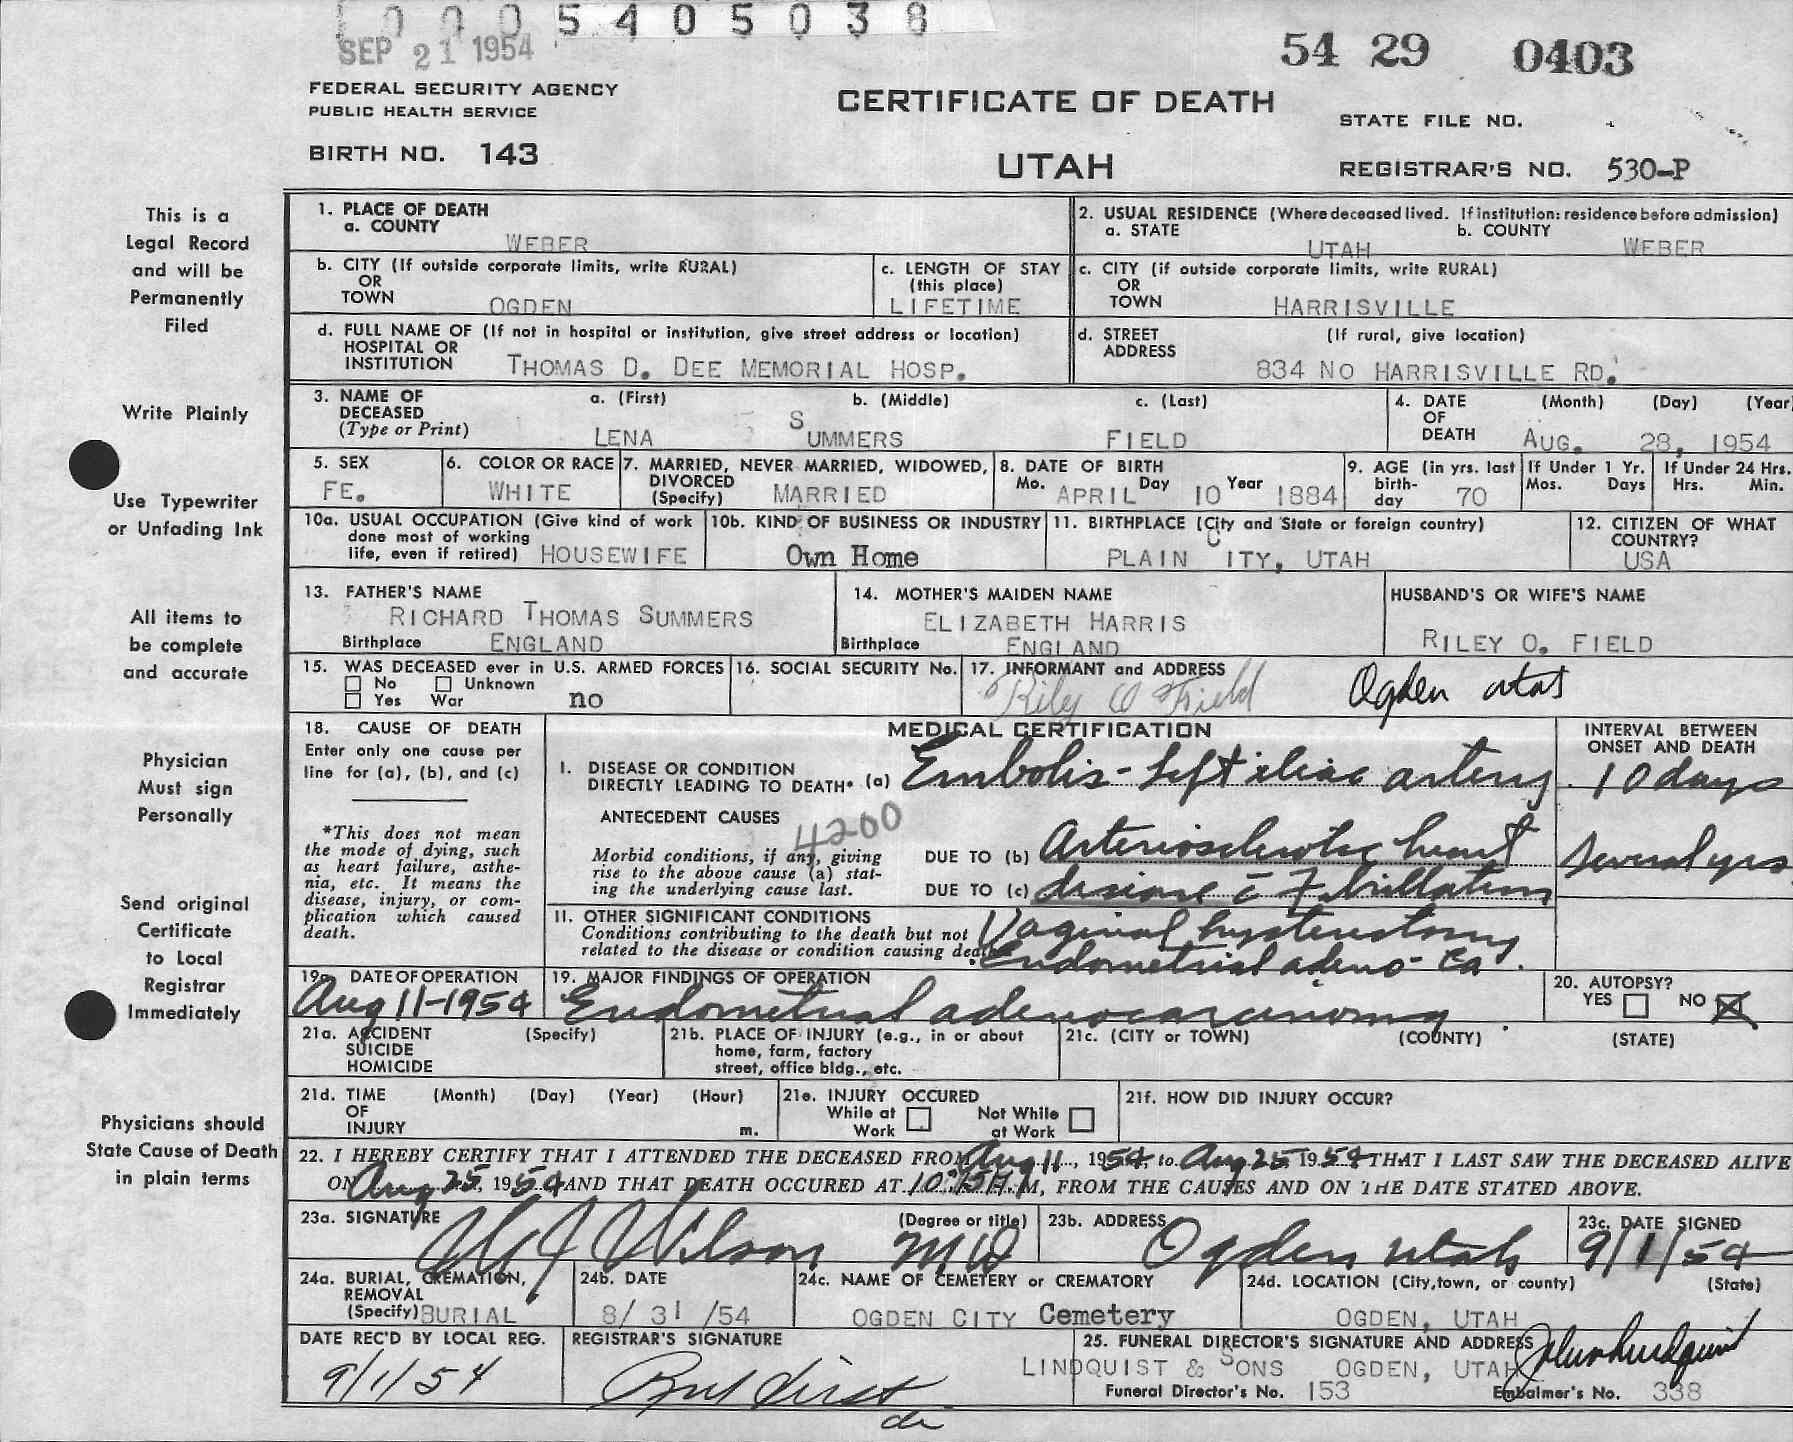 0005405038
SEP 21 1954
54 29 0403
FEDERAL SECURITY AGENCY
PUBLIC HEALTH SERVICE
CERTIFICATE OF DEATH
STATE FILE NO.
BIRTH NO. 143
UTAH
REGISTRAR'S NO. 530-P
This is a
Legal Record
and will be
Permanently
Filed
Write Plainly
Use Typewriter
or Unfading Ink
All items to
be complete
and accurate
Physician
Must sign
Personally
Send original
Certificate
to Local
Registrar
Immediately
Physicians should
State Cause of Death
in plain terms
1. PLACE OF DEATH
a. COUNTY
WEBER
2. USUAL RESIDENCE (Where deceased lived. If institution: residence before admission)
a. STATE UTAH b. COUNTY WEBER
b. CITY (If outside corporate limits, write RURAL)
OR
TOWN OGDEN
c. LENGTH OF STAY
(this place)
LIFETIME
c. CITY (if outside corporate limits, write RURAL)
OR
TOWN HARRISVILLE
d. FULL NAME OF (If not in hospital or institution, give street address or location)
HOSPITAL OR
INSTITUTION THOMAS D. DEE MEMORIAL HOSP.
d. STREET (If rural, give location)
ADDRESS
834 NO HARRISVILLE RD.
3. NAME OF a. (First) b. (Middle) c. (Last)
DECEASED
(Type or Print) LENA SUMMERS FIELD
4. DATE (Month) (Day) (Year
OF
DEATH AUG. 28, 1954
5. SEX
FE.
6. COLOR OR RACE
WHITE
7. MARRIED, NEVER MARRIED, WIDOWED,
DIVORCED
(Specify) MARRIED
8. DATE OF BIRTH
Mo. APRIL Day 10 Year 1884
9. AGE (in yrs. last
birth-
day 70
If Under 1 Yr.
Mos. Days
If Under 24 Hrs.
Hrs. Min.
10a. USUAL OCCUPATION (Give kind of work
done most of working
life, even if retired) HOUSEWIFE
10b. KIND OF BUSINESS OR INDUSTRY
Own Home
11. BIRTHPLACE (City and State or foreign country)
PLAIN CITY, UTAH
12. CITIZEN OF WHAT
COUNTRY?
USA
13. FATHER'S NAME
RICHARD THOMAS SUMMERS
Birthplace ENGLAND
14. MOTHER'S MAIDEN NAME
ELIZABETH HARRIS
Birthplace ENGLAND
HUSBAND'S OR WIFE'S NAME
RILEY O. FIELD
15. WAS DECEASED ever in U.S. ARMED FORCES
No Unknown
Yes War no
16. SOCIAL SECURITY No.
17. INFORMANT and ADDRESS
Riley O Field Ogden utah
18. CAUSE OF DEATH
Enter only one cause per
line for (a), (b), and (c)
*This does not mean
the mode of dying, such
as heart failure, asthe-
nia, etc. It means the
disease, injury, or com-
plication which caused
death.
MEDICAL CERTIFICATION
INTERVAL BETWEEN
ONSET AND DEATH
I. DISEASE OR CONDITION
DIRECTLY LEADING TO DEATH* (a) Embolis - left iliac artery 10 days
ANTECEDENT CAUSES
4200
Morbid conditions, if any, giving
rise to the above cause (a) stat-
ing the underlying cause last.
DUE TO (b) Arteriosclerotic heart several yrs
DUE TO (c) disease c̄ Fibrillation
II. OTHER SIGNIFICANT CONDITIONS
Conditions contributing to the death but not
related to the disease or condition causing death.
Vaginal hysterectomy
Endometrial adeno-Ca.
19a. DATE OF OPERATION
Aug 11-1954
19. MAJOR FINDINGS OF OPERATION
Endometrial adenocarcinoma.
20. AUTOPSY?
YES NO X
21a. ACCIDENT (Specify)
SUICIDE
HOMICIDE
21b. PLACE OF INJURY (e.g., in or about
home, farm, factory
street, office bldg., etc.
21c. (CITY or TOWN) (COUNTY) (STATE)
21d. TIME (Month) (Day) (Year) (Hour)
OF
INJURY m.
21e. INJURY OCCURED
While at Work Not While at Work
21f. HOW DID INJURY OCCUR?
22. I HEREBY CERTIFY THAT I ATTENDED THE DECEASED FROM Aug 11, 1954, to Aug 25 1954 THAT I LAST SAW THE DECEASED ALIVE
ON Aug 25, 1954 AND THAT DEATH OCCURED AT 10:15 A M, FROM THE CAUSES AND ON THE DATE STATED ABOVE.
23a. SIGNATURE (Degree or title)
Wilson M D
23b. ADDRESS
Ogden utah
23c. DATE SIGNED
9/1/54
24a. BURIAL, CREMATION,
REMOVAL
(Specify) BURIAL
24b. DATE
8/31/54
24c. NAME OF CEMETERY or CREMATORY
OGDEN CITY Cemetery
24d. LOCATION (City, town, or county) (State)
OGDEN, UTAH
DATE REC'D BY LOCAL REG.
9/1/54
REGISTRAR'S SIGNATURE
25. FUNERAL DIRECTOR'S SIGNATURE AND ADDRESS
LINDQUIST & SONS OGDEN, UTAH
Funeral Director's No. 153 Embalmer's No. 338